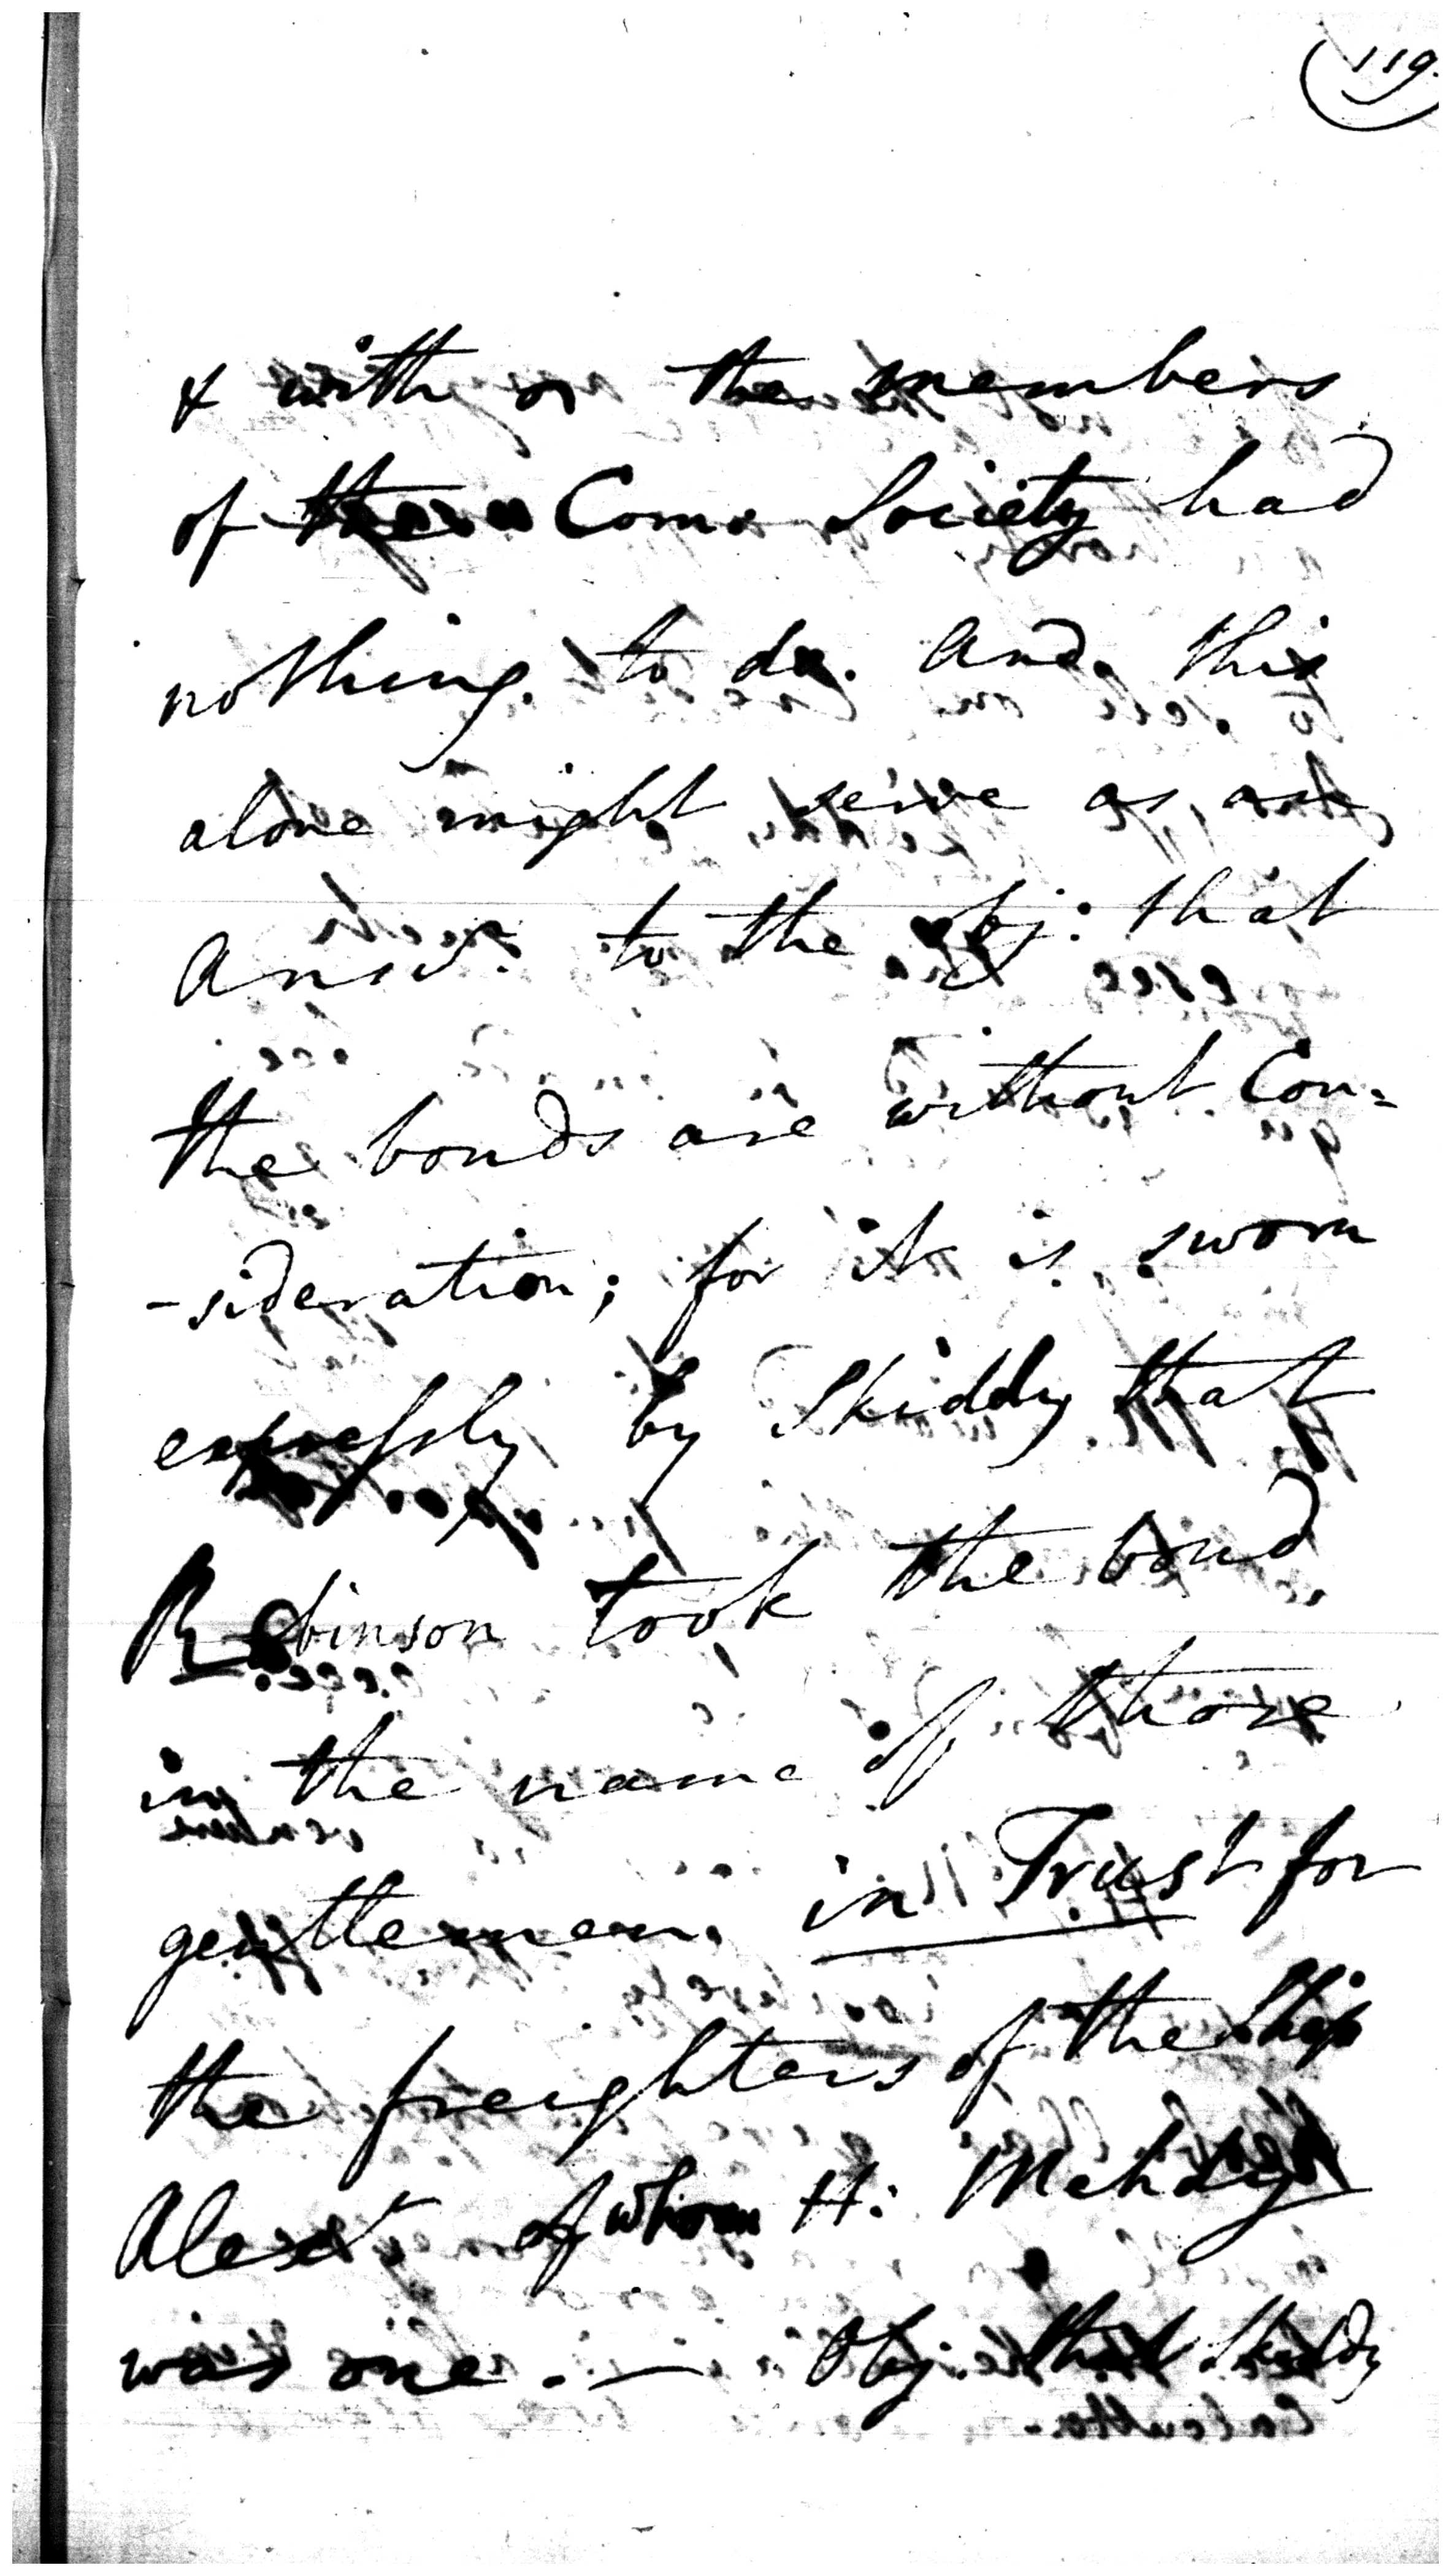 119.
& with wh the members
of the Com: Society had
nothing to do. And this
alone might serve as an
Answr. to the obj: that
the bonds are without Con=
-sideration; for it is sworn
expressly by Skiddy that
Robinson took the bond
in the name of those
gentlemen in Trust for
the freighters of the Ship
Alexr of whom H: Mehdy
was one. — Obj: that Skiddy